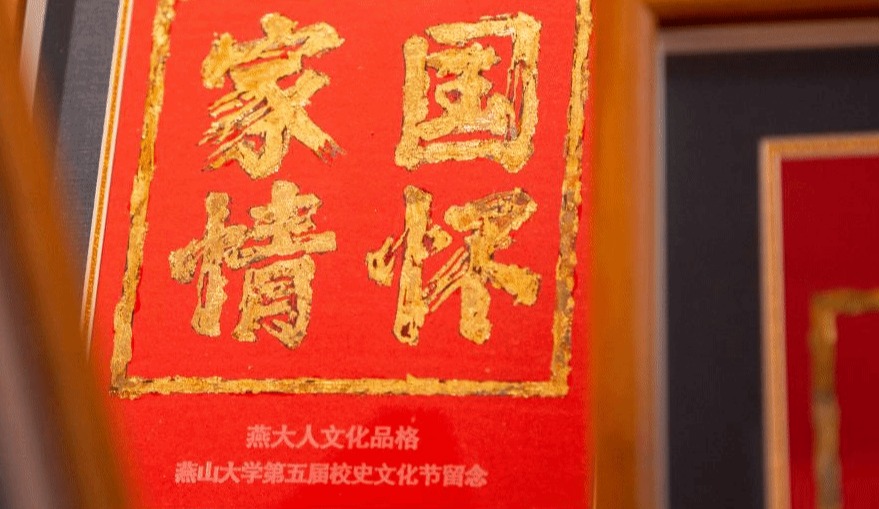 家国
情怀
燕大人文化品格
燕山大学第五届校史文化节留念